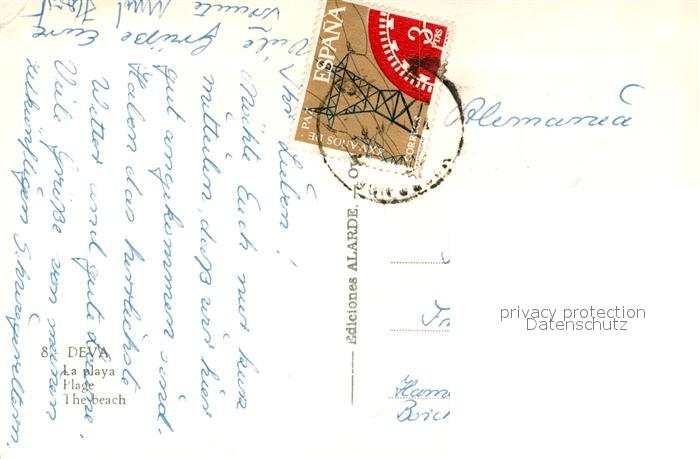 Ihr Lieben!
Möchte Euch nur kurz
mitteilen, daß wir hier
gut angekommen sind.
Haben das herrlichste
Wetter und gute Laune.
Viele Grüße von meinen
zukünftigen Schwiegereltern.
Viele Grüße Eure
ESPAÑA
3 PTAS
XXV AÑOS DE PA
CORREOS
Alemania
Ediciones ALARDE.
8 DEVA
La playa
Plage
The beach
privacy protection
Datenschutz